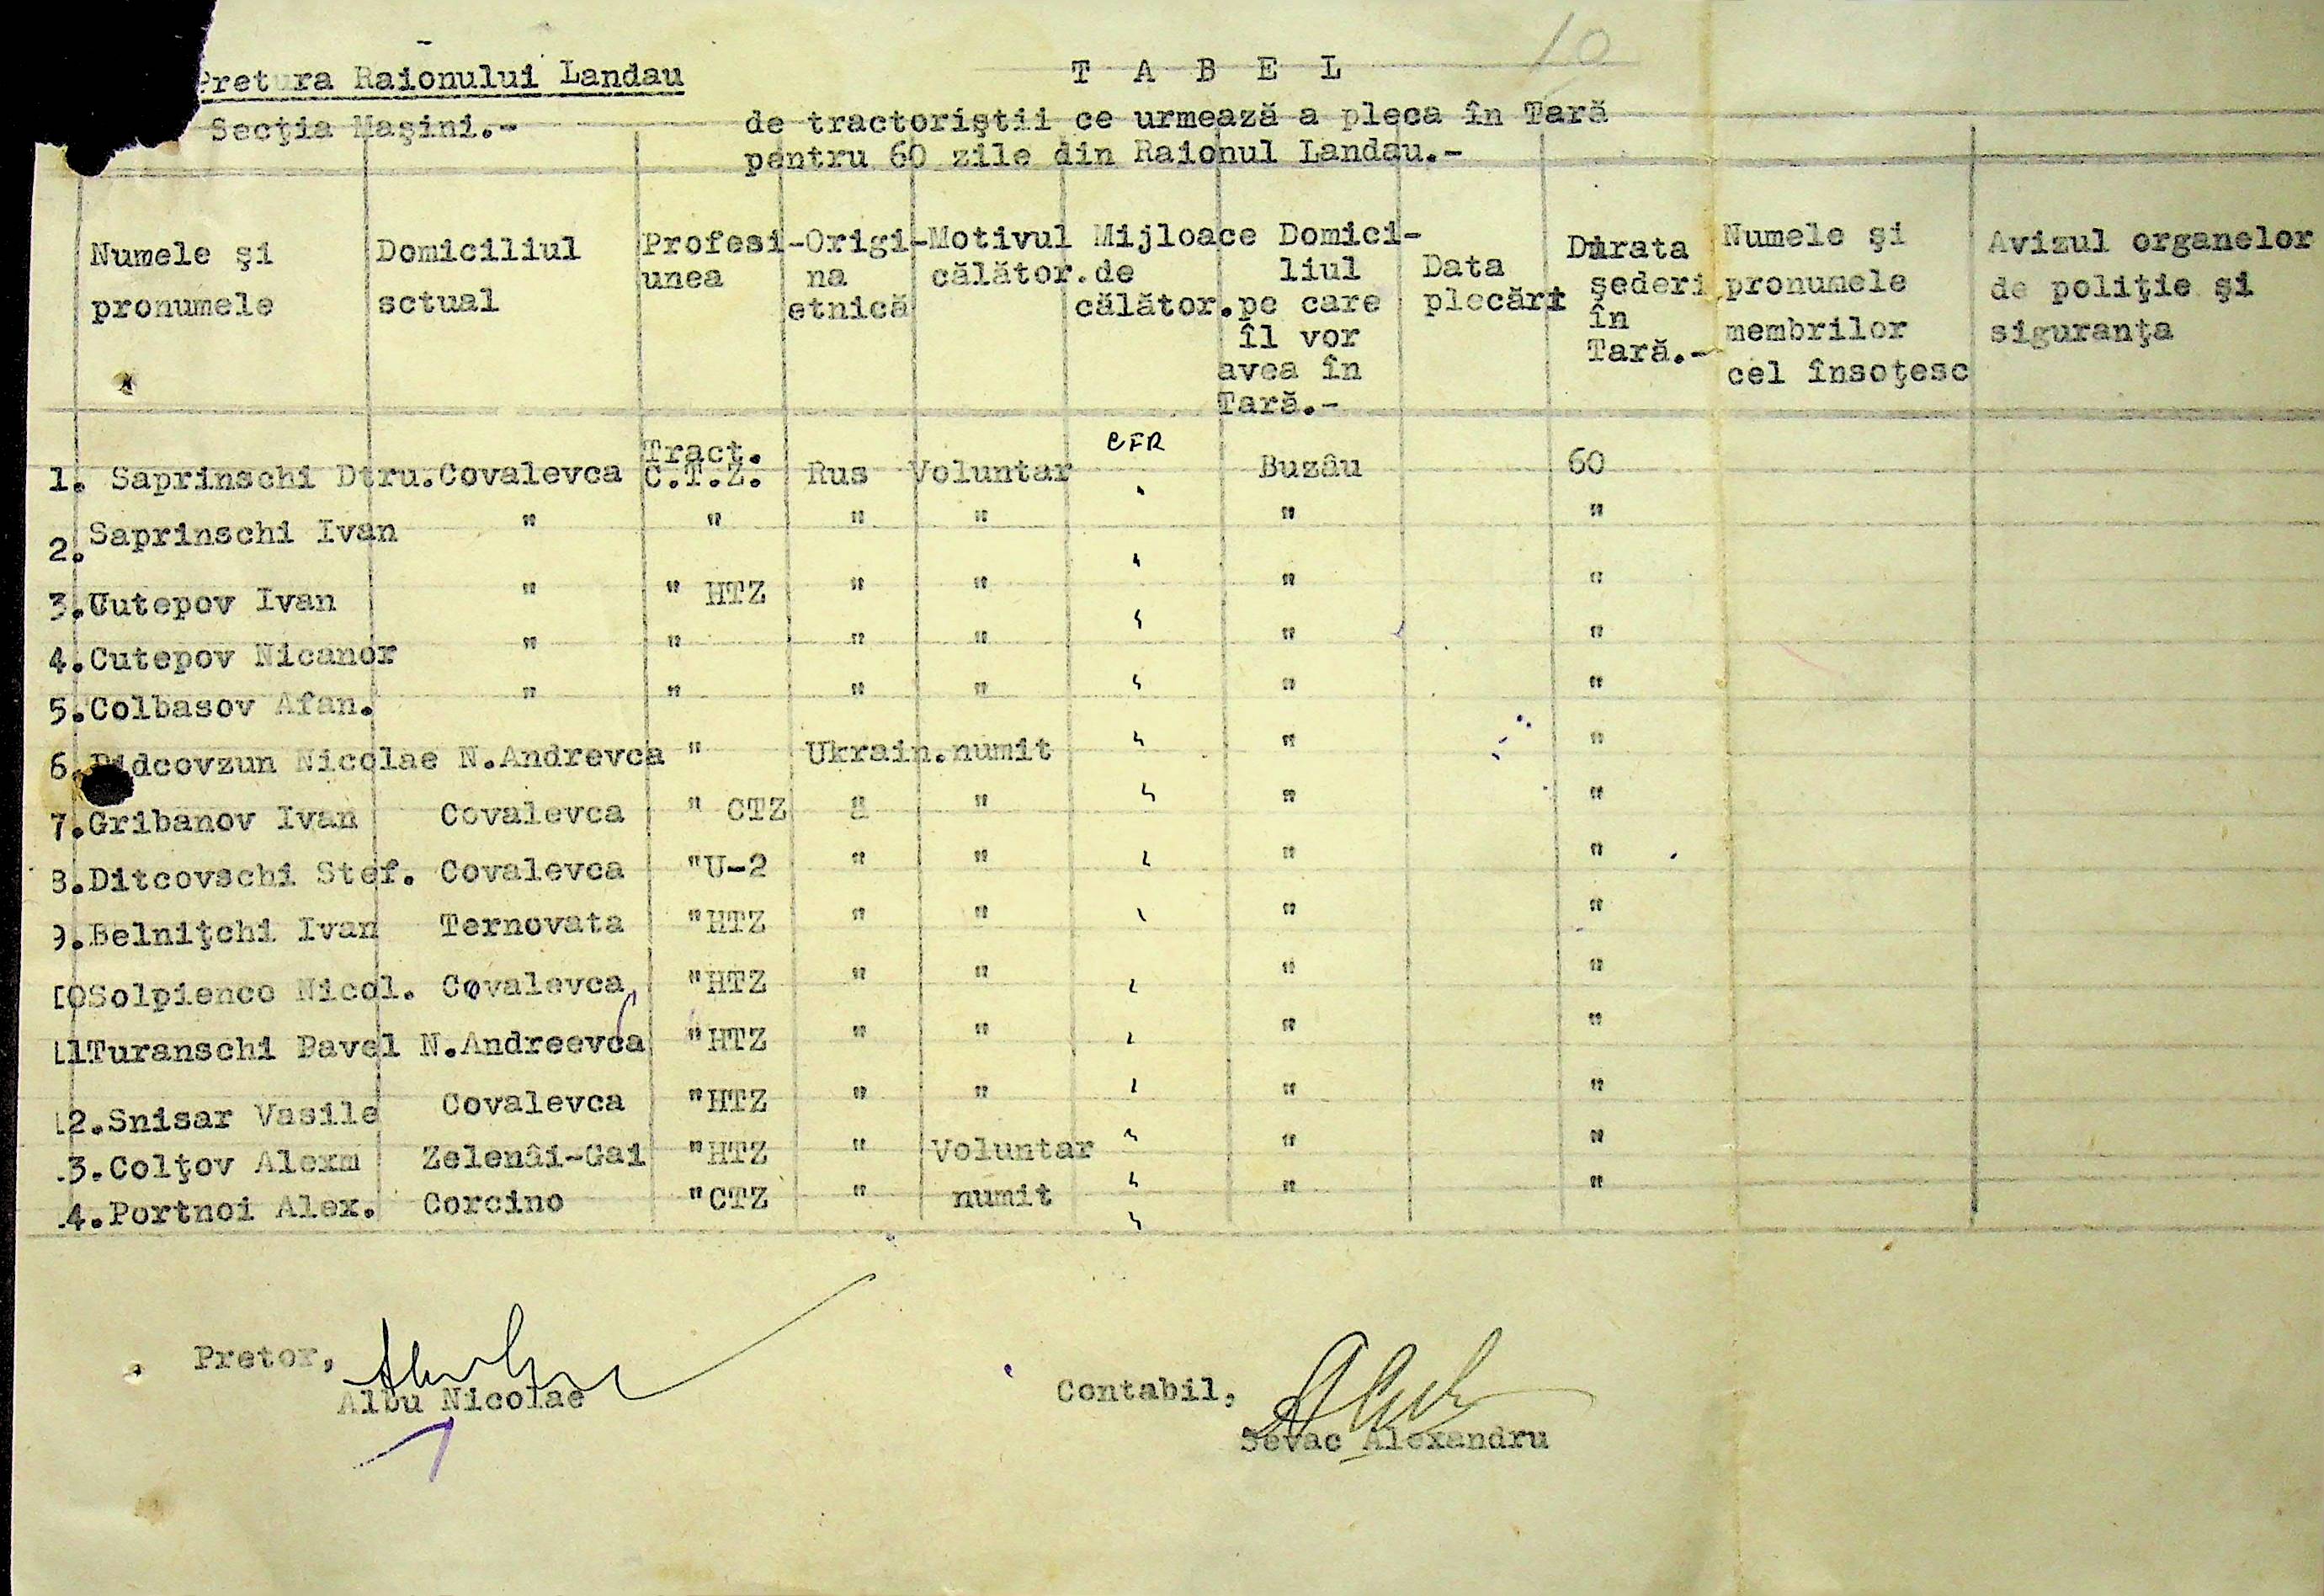 10
Pretura Raionului Landau
Secţia Maşini.-
T A B E L
de tractoriştii ce urmează a pleca în Tară
pentru 60 zile din Raionul Landau.-
Numele şi pronumele
Domiciliul sctual
Profesi-unea
Origi-na etnică
Motivul călător.
Mijloace de călător.
Domici-liul pe care îl vor avea în Tară.-
Data plecări
Durata şederi în Tară.-
Numele şi pronumele membrilor cel însoţesc
Avizul organelor de poliţie şi siguranţa
1. Saprinschi Dtru. Covalevca Tract. C.T.Z. Rus Voluntar CFR Buzâu 60
2. Saprinschi Ivan " " " " " " "
3. Cutepov Ivan " " HTZ " " " " "
4. Cutepov Nicanor " " " " " " "
5. Colbasov Afan. " " " " " " "
6. Didcovzun Nicolae N.Andrevca " Ukrain. numit " " "
7. Gribanov Ivan Covalevca " CTZ " " " " "
8. Ditcovschi Stef. Covalevca "U-2 " " " " "
9. Belniţchi Ivan Ternovata "HTZ " " " " "
10 Solpienco Nicol. Covalevca "HTZ " " " " "
11 Turanschi Pavel N.Andreevca "HTZ " " " " "
12. Snisar Vasile Covalevca "HTZ " " " " "
3. Colţov Alexm Zelenâi-Gai "HTZ " Voluntar " " "
4. Portnoi Alex. Corcino "CTZ " numit " " "
Pretor,
Albu Nicolae
Contabil,
Sevac Alexandru